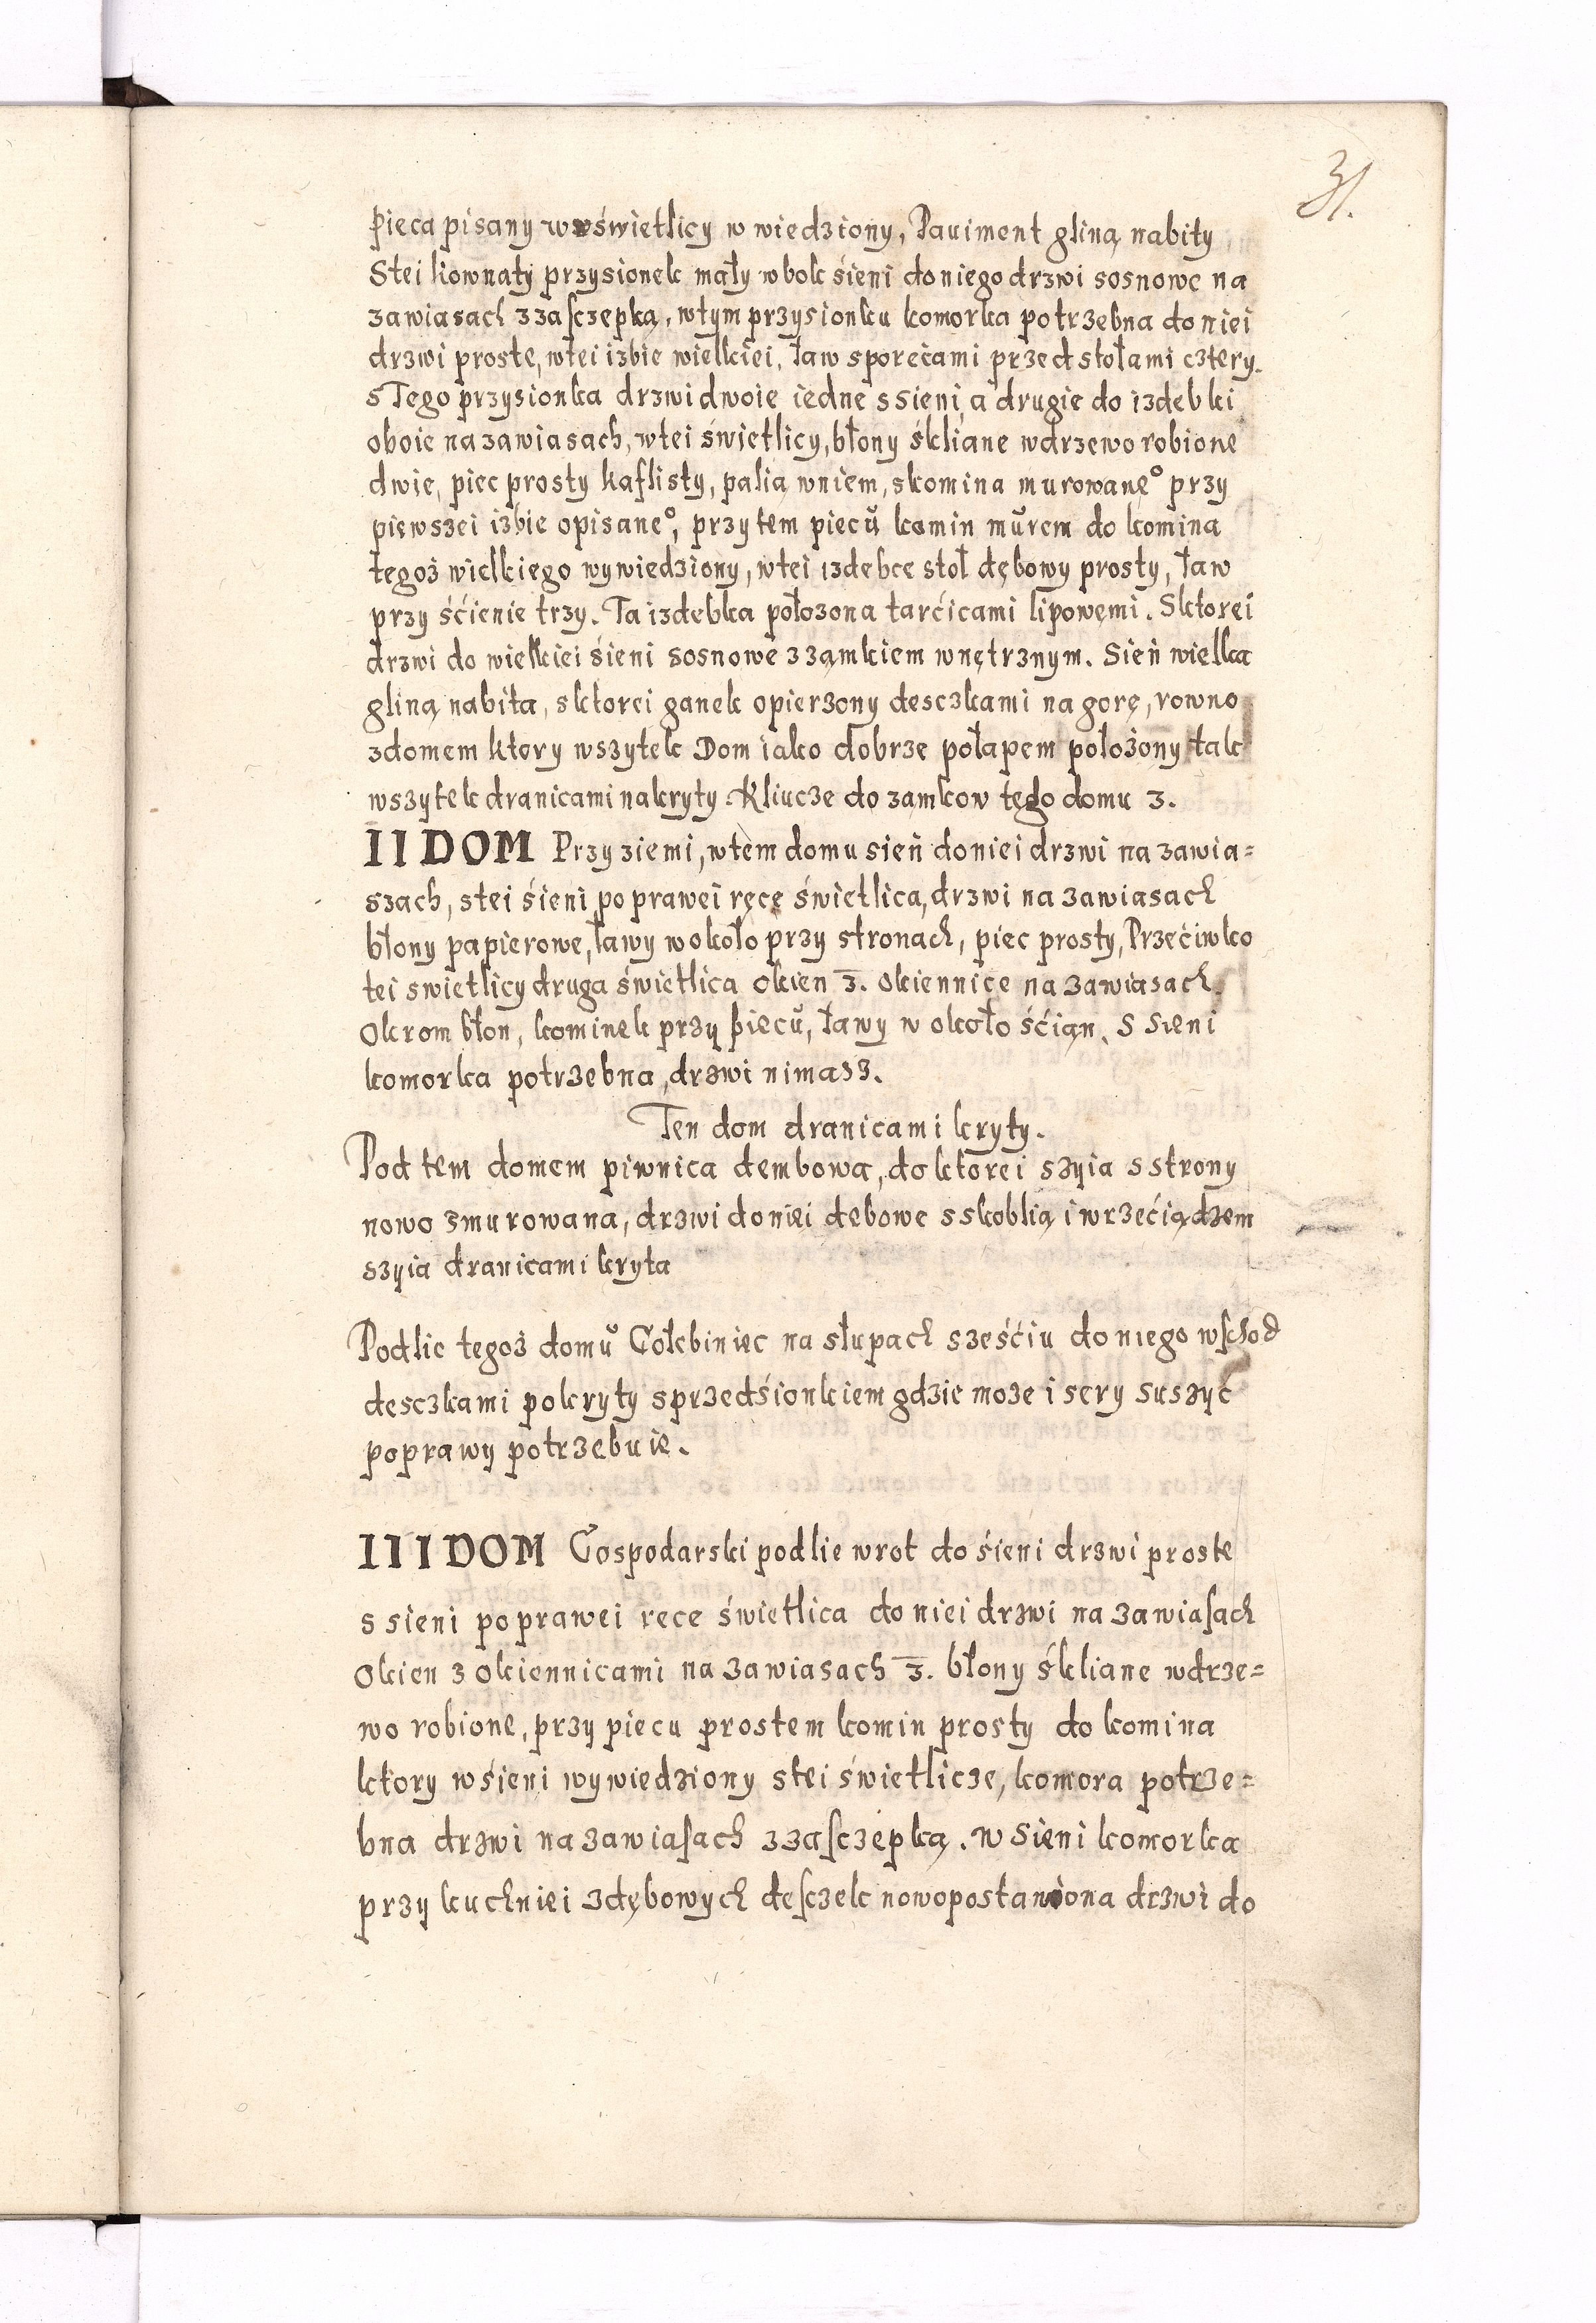 31.
pieca pisany w świetlicy w wiedziony, Pauiment gliną nabity
Stei kownaty przysionek mały wbok śieni do niego drzwi sosnowe na
zawiasach z zasczepką, wtym przysionku komorka potrzebna do niei
drzwi proste, wtei izbie wielkiei, ław sporęćami przed stołami cztery.
s Tego przysionka drzwi dwoie iedne s sieni, a drugie do izdebki
oboie na zawiasach, wtei świetlicy, błony śkliane wdrzewo robione
dwie, piec prosty kaflisty, palią wniem, skomina murowanę° przy
pięwszei izbie opisane°, przy tem piecŭ komin mŭrem do komina
tegoż wielkiego wywiedziony, wtei izdebce stoł dębowy prosty, ław
przy śćienie trzy. Ta izdebka położona tarćicami lipowęmi. Sktorei
drzwi do wielkiei śieni sosnowe z ząmkiem wnętrznym. Sień wielka
gliną nabita, sktorei ganek opierzony desczkami na gorę, rowno
zdomem ktory wszytek Dom iako dobrze połapem położony tak
wszytek dranicami nakryty. Kliucze do zamkow tego domu 3.
II DOM Przy ziemi, wtem domu sień do niei drzwi na zawia=
szach, stei śieni po prawei ręcę świetlica, drzwi na zawiasach
błony papierowe, ławy wokoło przy stronach, piec prosty, Przećiwko
tei swietlicy druga świetlica Okien 3. okiennice na zawiasach.
Okrom błon, kominek przy piecŭ, ławy w około śćian, S sieni
komorka potrzebna, drzwi nimasz.
Ten dom dranicami kryty.
Pod tem domem piwnica dembowa, do ktorei szyia s strony
nowo zmurowana, drzwi do niei dębowe s skoblią i wrzećiądzem
szyia dranicami kryta
Podlie tegoż domŭ Gołebiniec na słupach sześćiu do niego wschod
desczkami pokryty sprzedśionkiem gdzie może i sery suszyć
poprawy potrzebuie.
III DOM Gospodarski podlie wrot do śieni drzwi proste
s sieni po prawei rece świetlica do niei drzwi na zawiasach
Okien z okiennicami na zawiasach 3. błony śkliane wdrze=
wo robione, przy piecu prostem komin prosty do komina
ktory wśieni wywiedziony stei świetlicze, komora potrze=
bna drzwi na zawiasach z zasczepką. w Sieni komorka
przy kuchniei zdębowych desczek nowo postawiona drzwi do